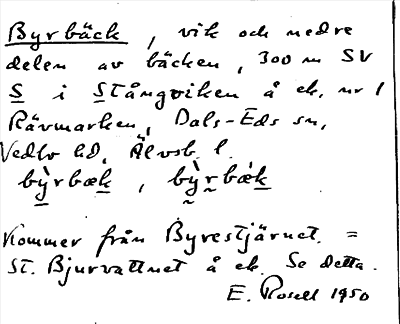 Byrbäck, vik och nedre
delen av bäcken, 300 m SV
S i Stångviken å ek. nr 1
Rävmarken, Dals-Eds sn,
Vedbo hd, Älvsb. l.
bỳ̖̖rbæk, bỳrbæ̀k
Kommer från Byrestjärnet =
St. Bjurvattnet å ek. Se detta.
E. Rosell 1950